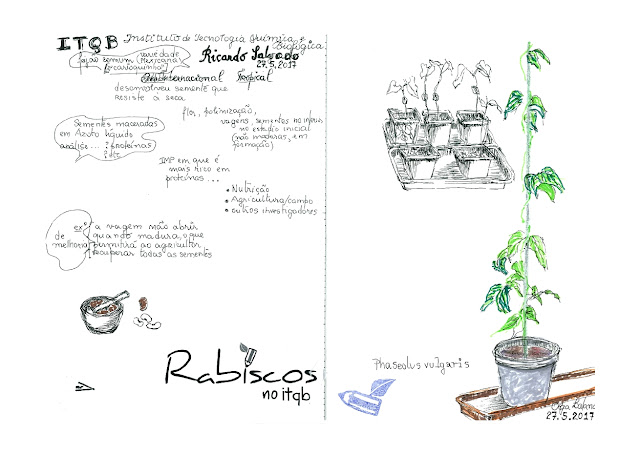 ITQB Instituto de Tecnologia Química e
Biológica
feijão comum
variedade
(Mexicana)
"carloquinho"
Ricardo Salgado
27.5.2017
Internacional Tropical
desenvolveu semente que
resiste a seca
flor, polinização,
vagens, sementes no
no estadio inicial
(não maduras, em
formação)
Sementes maceradas
em Azoto líquido
análise... proteínas
IMP em que é
mais rico em
proteínas...
• Nutrição
• Agricultura/campo
• outros investigadores
exº de melhoria
a vagem não abrir
quando madura, o que
permitirá ao agricultor
recuperar todas as sementes
Rabiscos
no itqb
Phaseolus vulgaris
27.5.2017